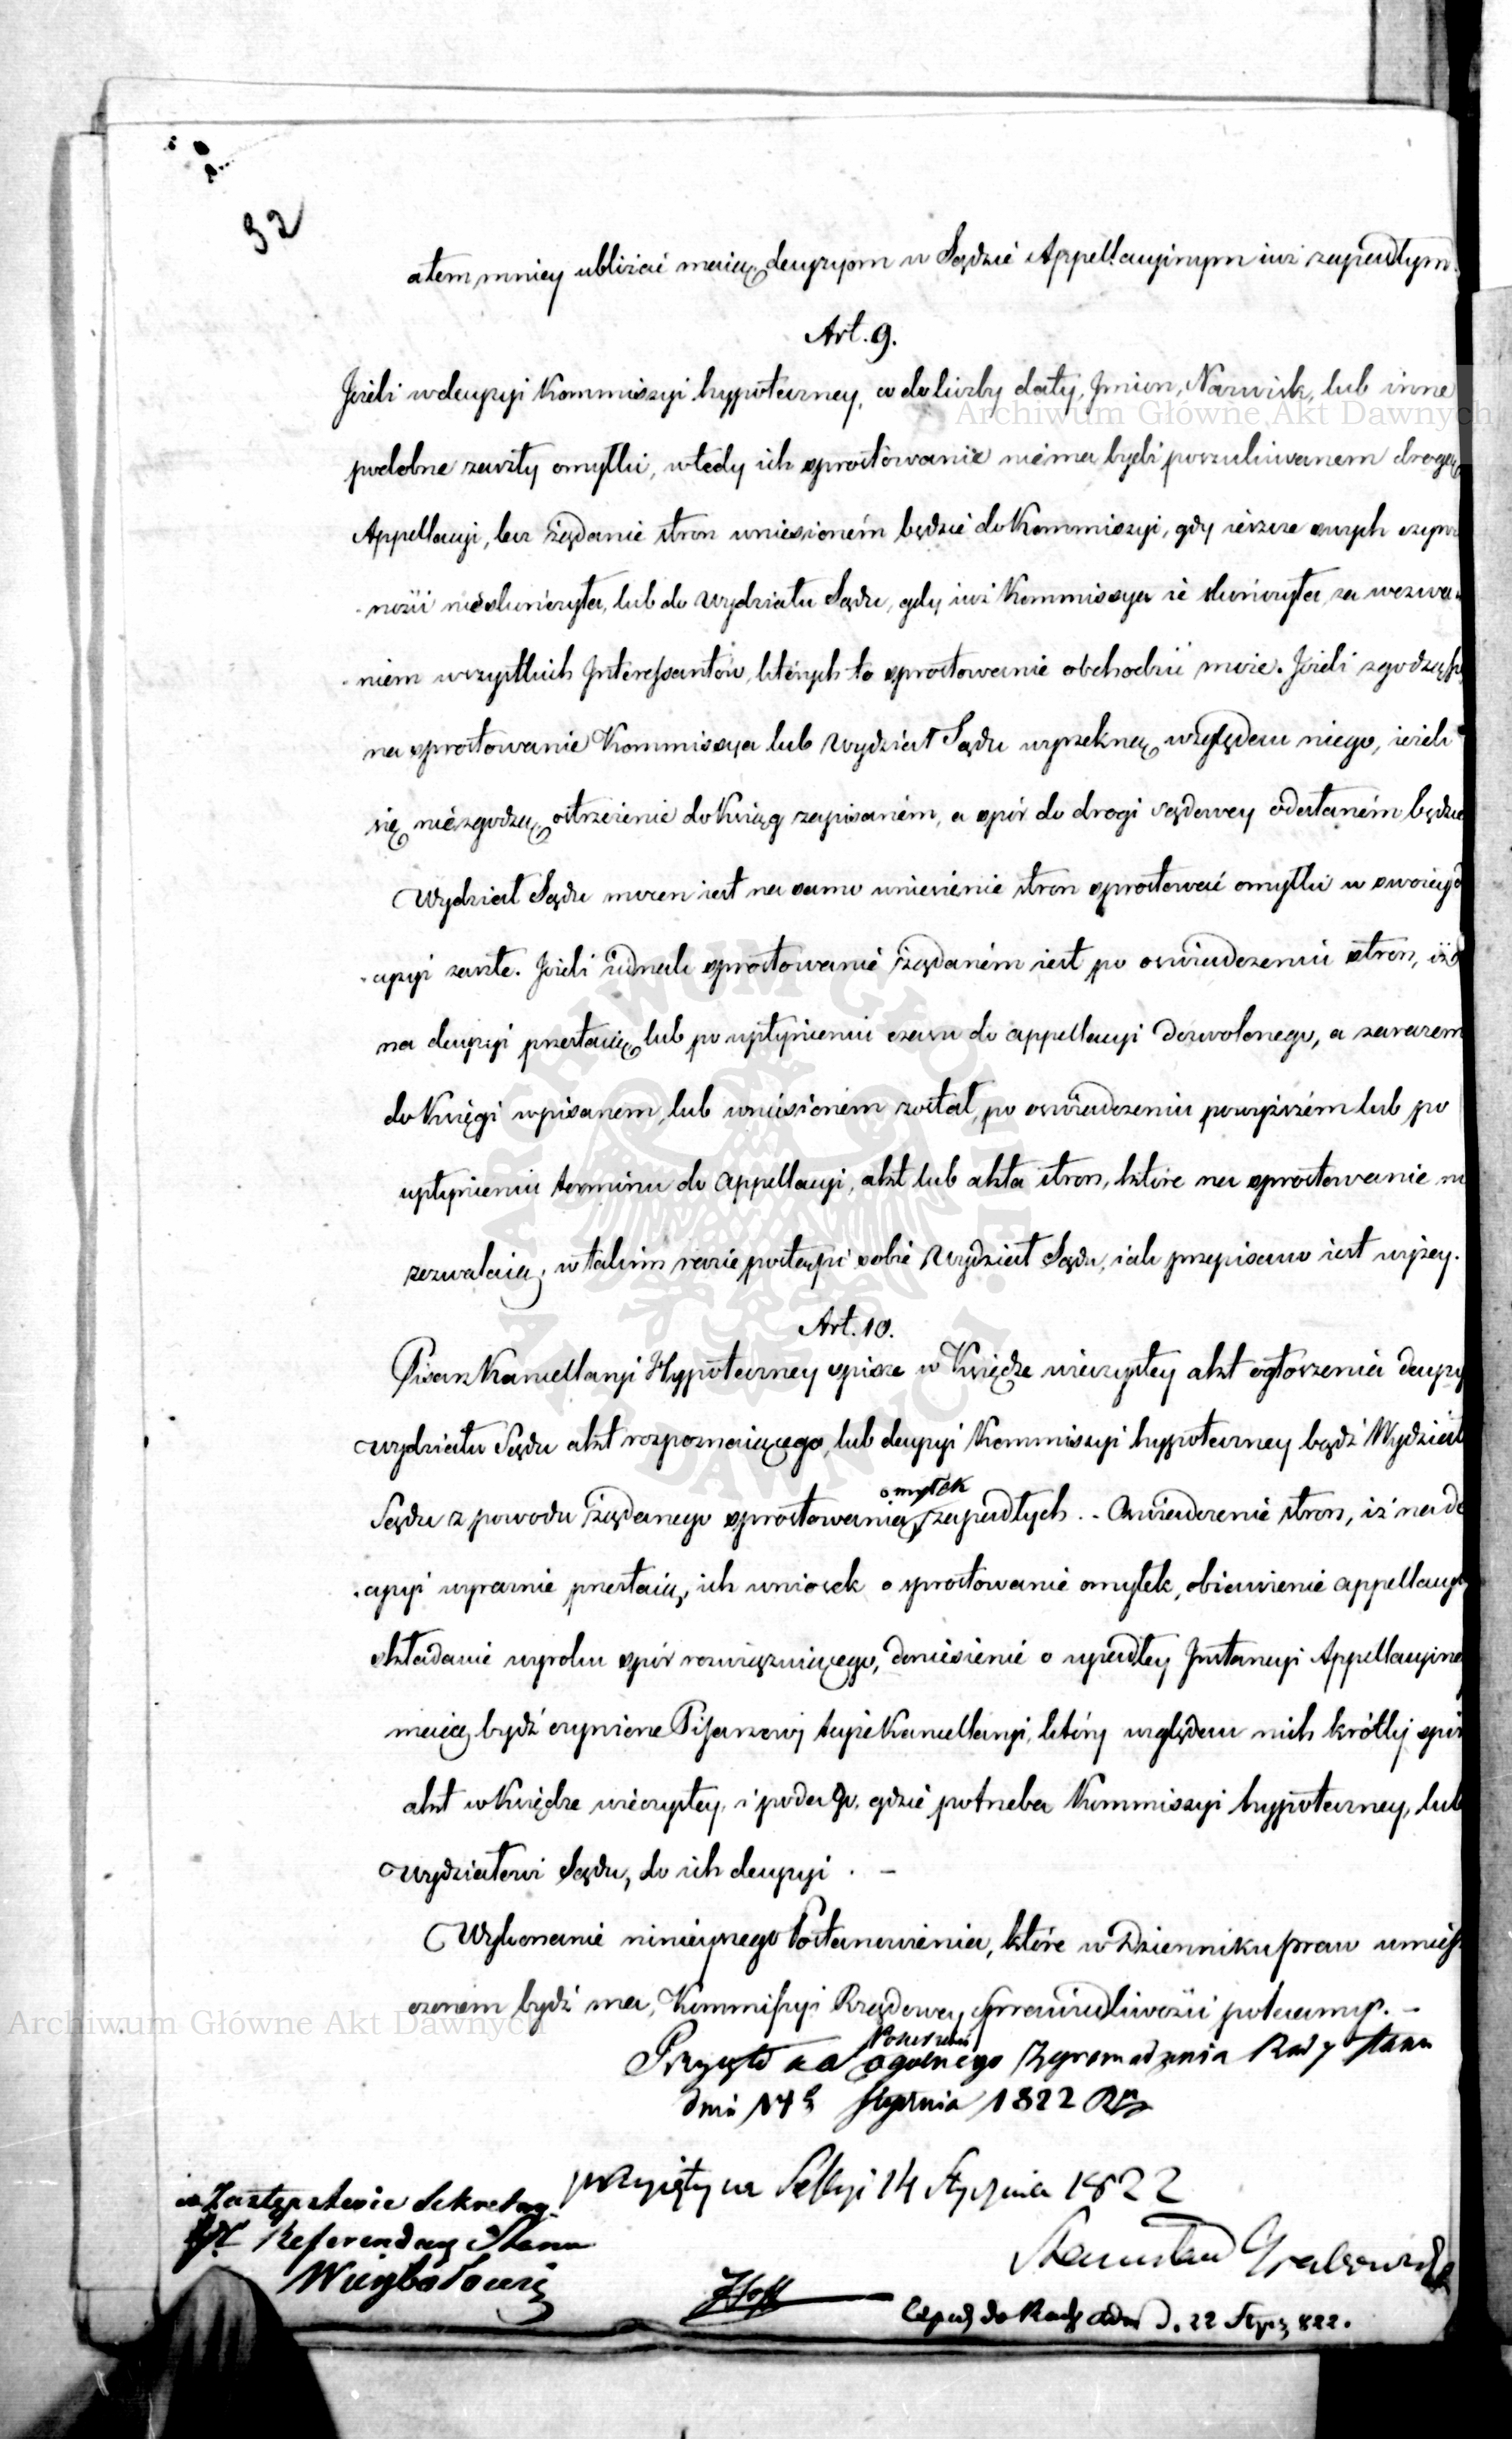 32
a tem mniey ubliżać maią decyzyom w Sądzie Appellacyinym iuż zapadłym.
Art. 9.
Jeżeli w decyzyi Kommissyi hypoteczney, co do liczby daty, Jmion, Nazwisk, lub inne
podobne zaszły omyłki, wtedy ich sprostowanie nie ma bydź poszukiwanem drogą
Appellacyi, lecz żądanie stron wniesioném będzie do Kommissyi, gdy ieszcze swych czyn
ności nieskończyła, lub do Wydziału Sądu, gdy iuż Kommissya ie skończyła, za wezwa
niem wszystkich Interessantów, których to sprostowanie obchodzić może. Jeżeli zgodzą się
na sprostowanie Kommissya lub Wydział Sądu wyrzekną względem niego, ieżeli
się niezgodzą, ostrzeżenie do Ksiąg zapisaném, a spór do drogi sądowey odesłaném będzie
Wydział Sądu mocen iest na samo wniesienie stron sprostować omyłki w swoiey de
cyzyi zaszłe. Jeżeli iednak sprostowanie żądaném iest po oświadczeniu stron, iż
na decyzyi przestaią, lub po upłynieniu czasu do appellacyi dozwolonego, a zarazem
do Księgi wpisanem, lub wniesioném został, po oświadczeniu powyższém lub po
upłynieniu terminu do appellacyi, akt lub akta stron, które na sprostowanie nie
zezwalaią, w takim razie postąpi sobie Wydział Sądu, iak przepisano iest wyżey.
Art. 10.
Pisarz Kancellaryi Hypoteczney spisze w Księdze wieczystey akt ogłoszenia decyzyi
Wydziału Sądu akt rozpoznaiącego, lub decyzyi Kommissyi hypoteczney bądź Wydziału
omyłek
Sądu z powodu żądanego sprostowania zapadłych. - Oświadczenie stron, iż na de
cyzyi wyraźnie przestaią, ich wniosek o sprostowanie omyłek, obiawienie appellacyi
składanie wyroku spór rozwiązuiącego, doniesienie o upadłey Instancyi Appellacyiney
maią bydź czynione Pisarzowi teyże Kancellaryi, który względem nich krótki spisze
akt w Księdze wieczystey, i poda go, gdzie potrzeba Kommissyi hypoteczney, lub
Wydziałowi Sądu, do ich decyzyi. -
Wykonanie ninieyszego Postanowienia, które w Dzienniku praw umiesz
czonem bydź ma, Kommissyi Rządowey Sprawiedliwości polecamy. -
Posiedzeniu
Przyięto na ogólnego Zgromadzenia Rady Stanu
dnia 14 Stycznia 1822
przyięty na Sessyi 14 Stycznia 1822
w Zastępstwie Sekretarz
Referendarz Stanu
Stanisław Grabowski
do Rady d. 22 822.
Archiwum Główne Akt Dawnych
Archiwum Główne Akt Dawnych
ARCHIWUM GŁÓWNE AKT DAWNYCH